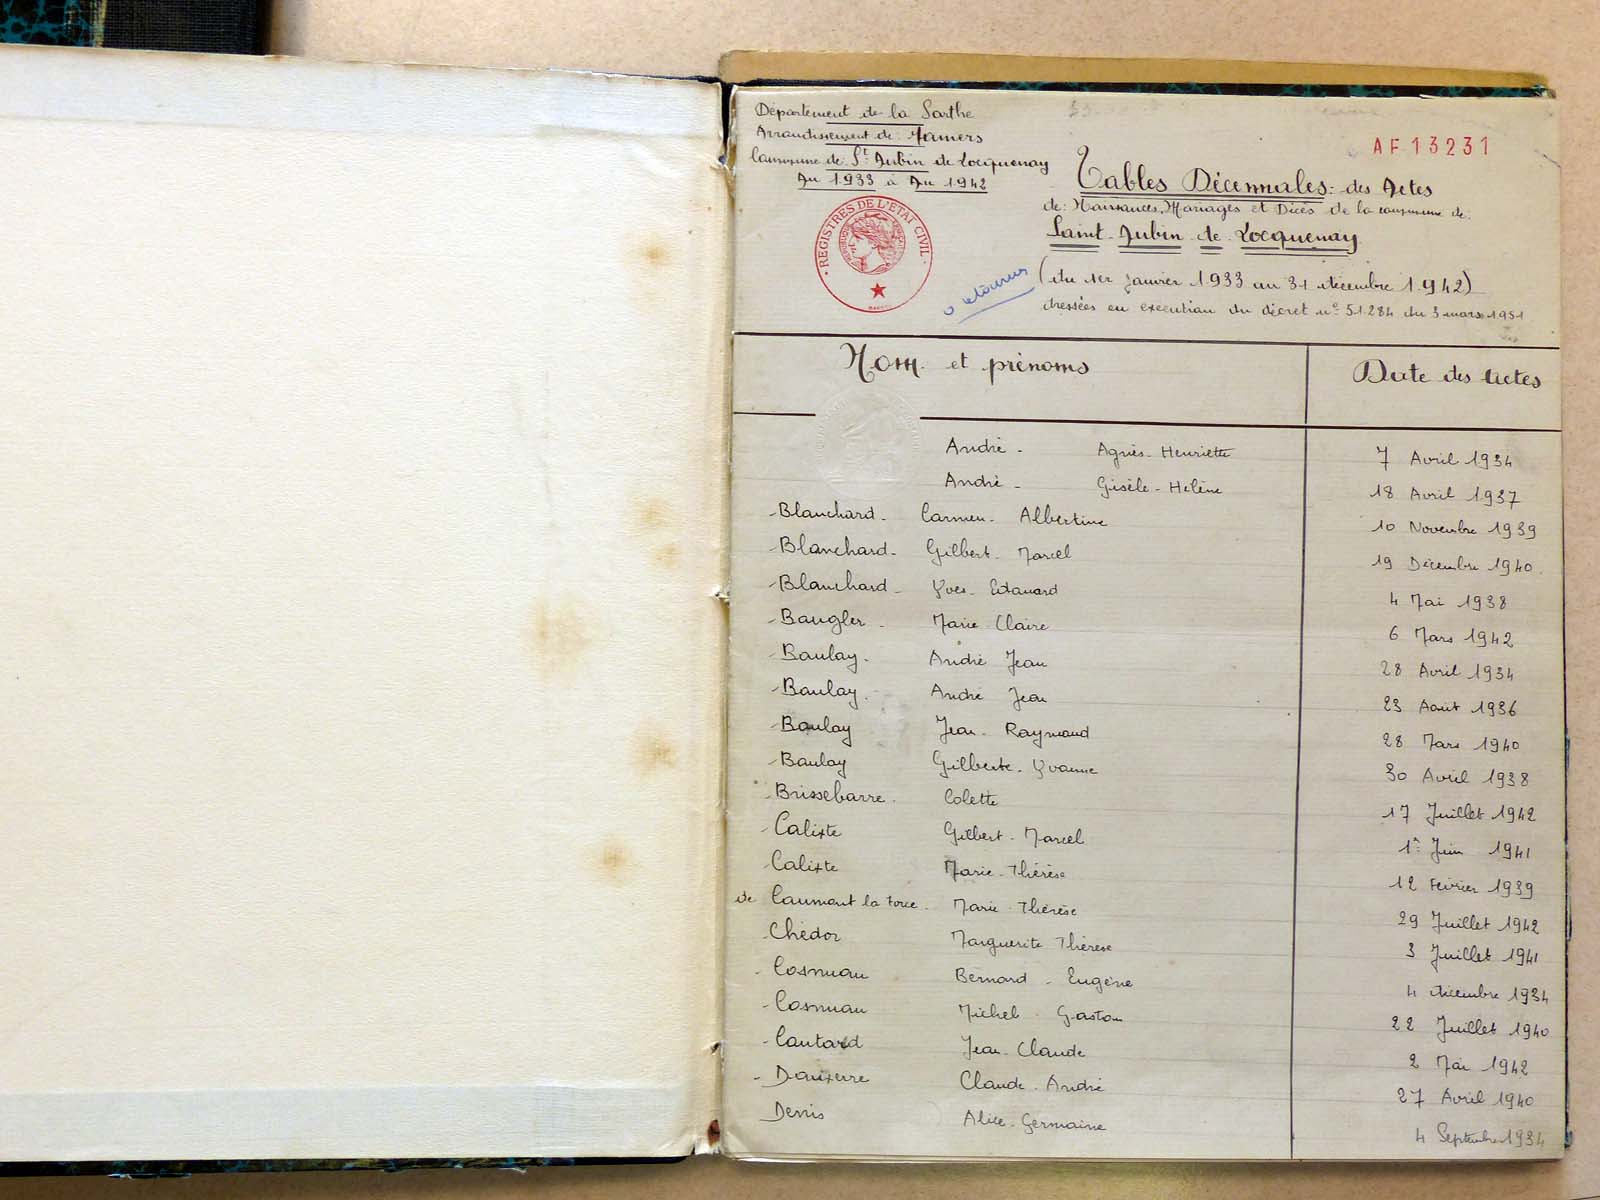 Département de la Sarthe
Arrondissement de Mamers
Commune de St Aubin de Locquenay
An 1933 à An 1942
REGISTRES DE L'ÉTAT CIVIL
AF 13231
Tables Décennales: des Actes
de: Naissances, Mariages et Décès de la commune de:
Saint-Aubin-de-Locquenay
(du 1er Janvier 1933 au 31 décembre 1942)
dressées en execution du décret n° 51.284 du 3 mars 1951
Nom et prénoms Date des Actes
André - Agnès-Henriette 7 Avril 1934
André - Gisèle-Hélène 18 Avril 1937
Blanchard - Carmen - Albertine 10 Novembre 1939
Blanchard - Gilbert - Marcel 19 Décembre 1940
Blanchard - Yves - Edouard 4 Mai 1938
Baugler - Marie-Claire 6 Mars 1942
Boulay - André Jean 28 Avril 1934
Boulay - André Jean 23 Août 1936
Boulay Jean-Raymond 28 Mars 1940
Boulay Gilberte-Yvonne 30 Avril 1938
Brissebarre - Colette 17 Juillet 1942
Calixte Gilbert-Marcel 1er Juin 1941
Calixte Marie-Thérèse 12 Février 1939
de Caumont la Force - Marie-Thérèse 29 Juillet 1942
Chédor Marguerite Thérèse 3 Juillet 1941
Cosnuau Bernard - Eugène 4 décembre 1934
Cosnuau Michel - Gaston 22 Juillet 1940
Coutard Jean-Claude 2 Mai 1942
Dauxerre Claude-André 27 Avril 1940
Denis Alice-Germaine 4 Septembre 1934